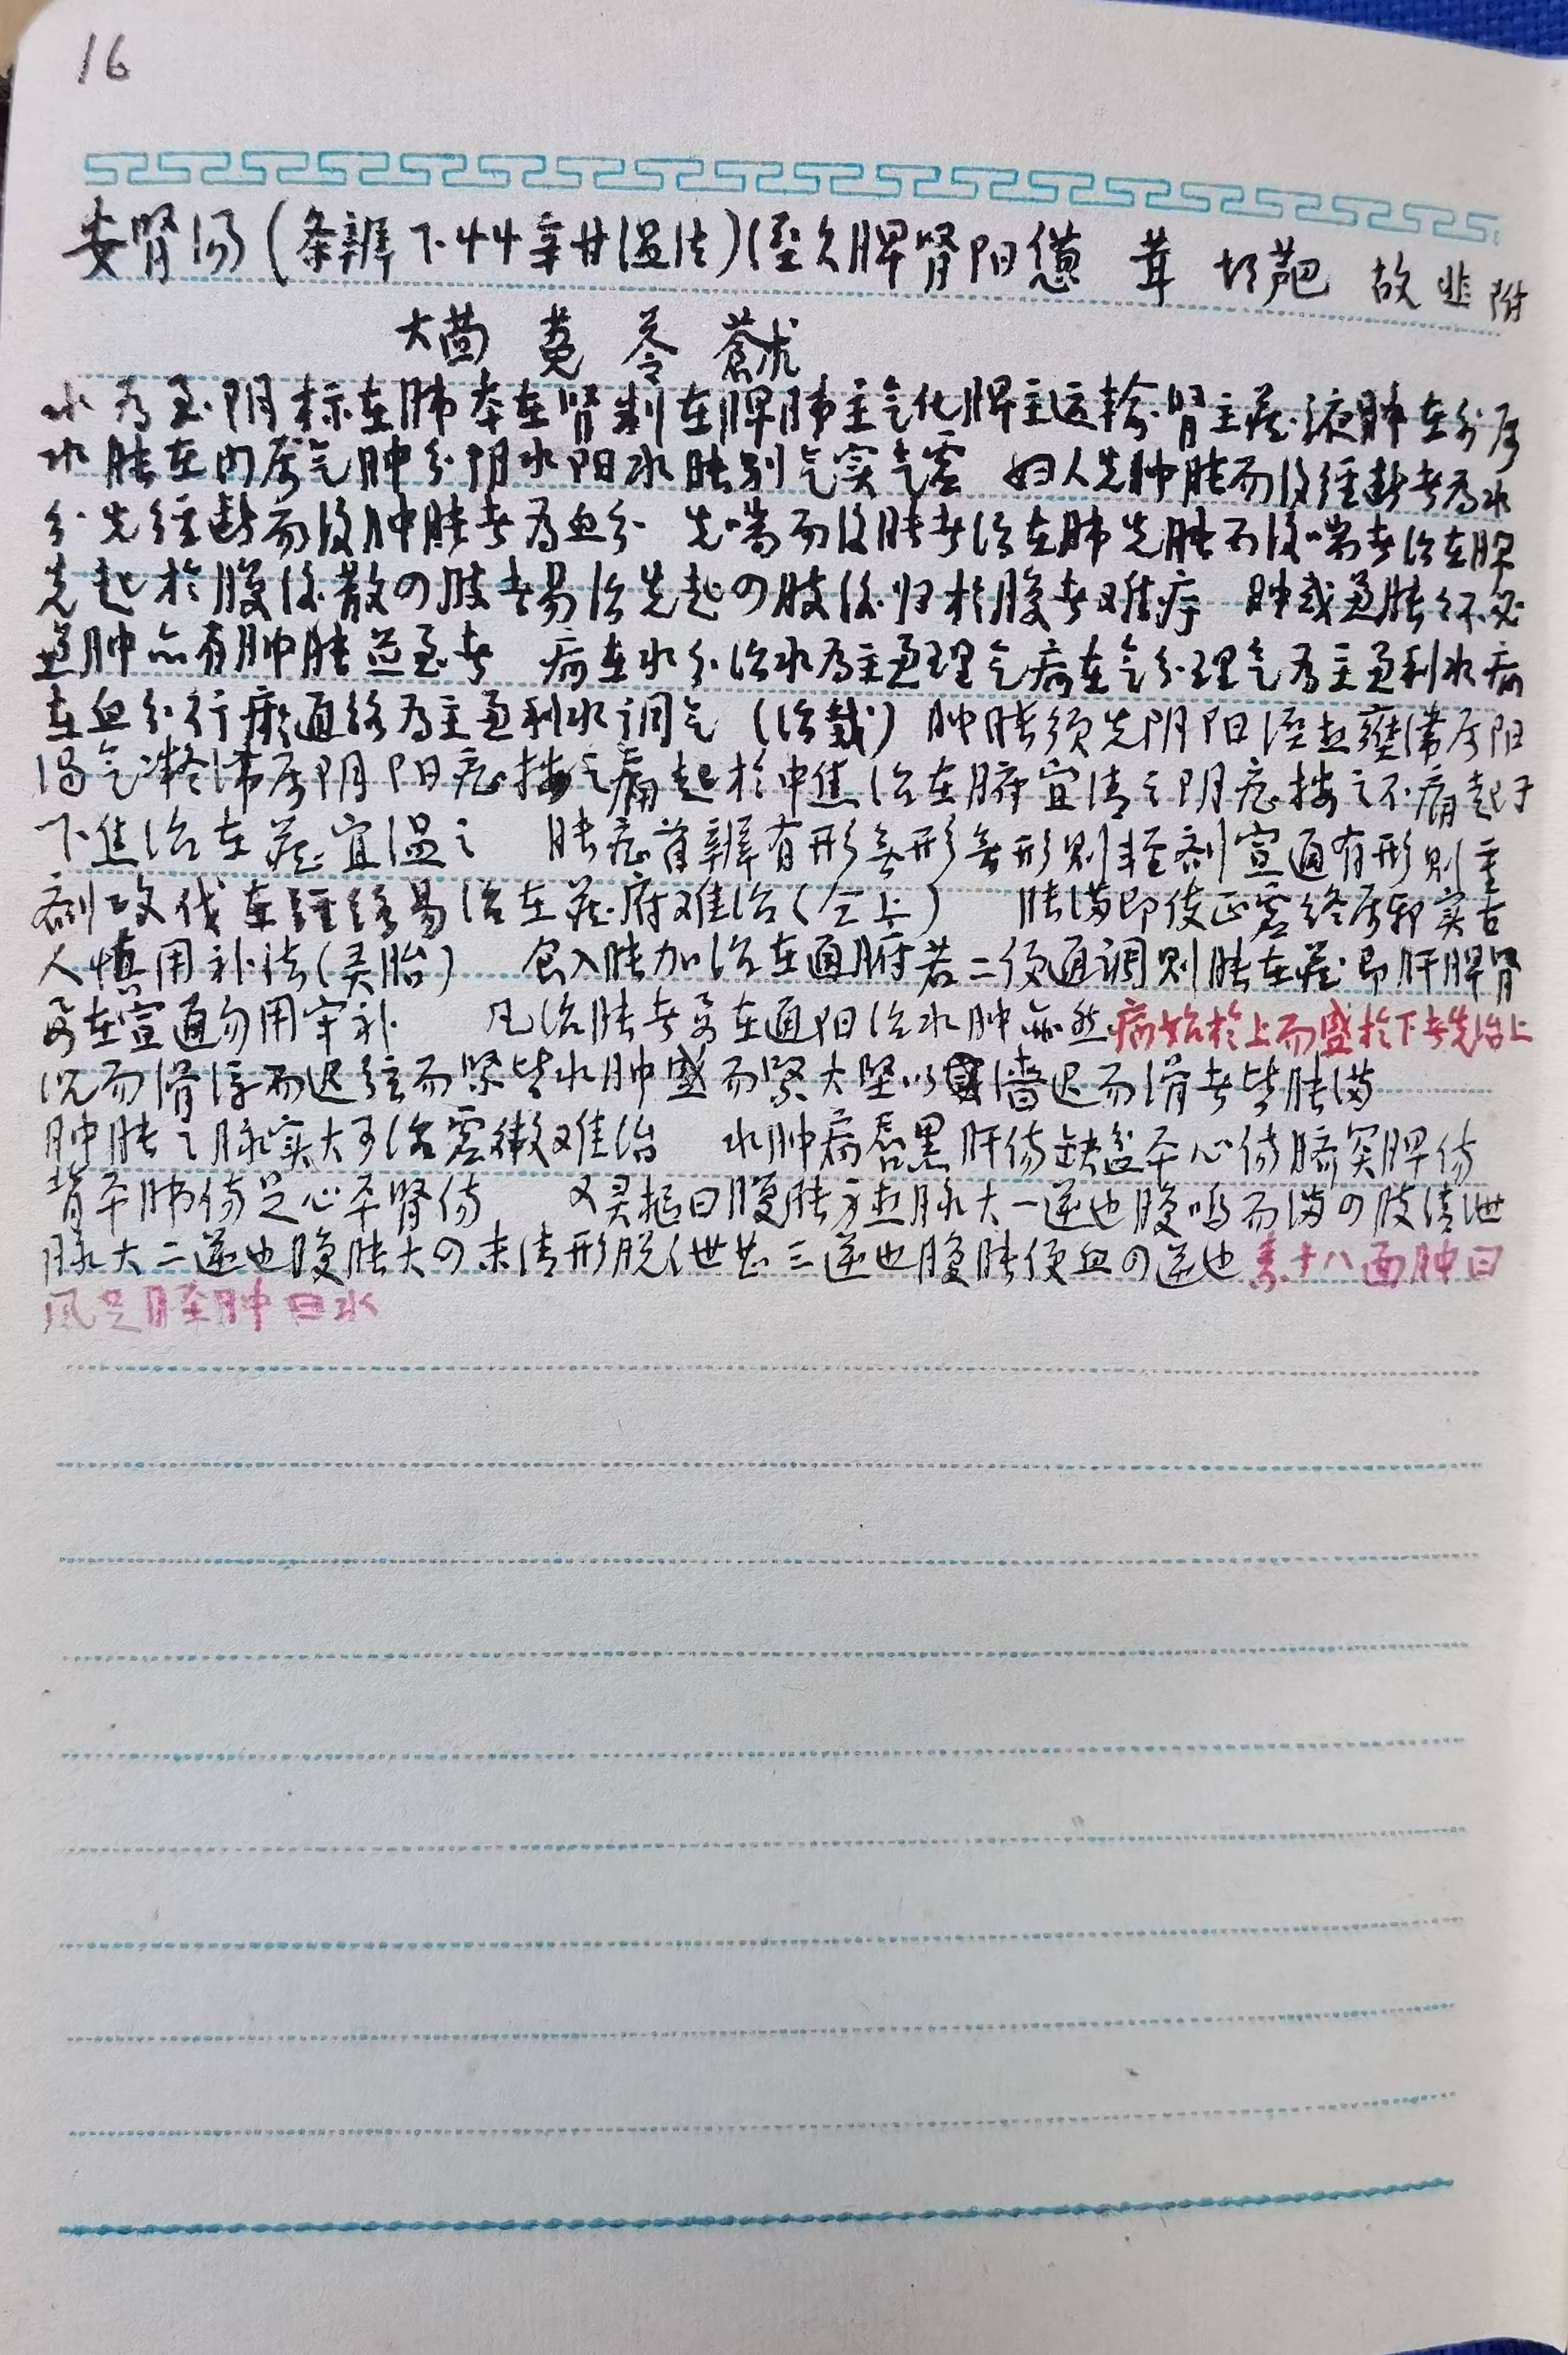 16
安肾汤(条辨下·44辛甘温法)湿久脾肾阳惫 茸 胡葫 故 韭 附
大茴 菟 苓 蒼术
水为至阴标在肺本在肾制在脾肺主气化脾主运输肾主藏液肿在外属
水胀在内属气肿分阴水阳水胀别气实气虚 妇人先肿胀而後经断者为水
分先经断而後肿胀者为血分 先喘而後胀者治在肺先胀而後喘者治在脾
先起於腹後散四肢者易治先起四肢後归於腹者难疗 肿或兼胀胀不必
兼肿亦有肿胀並至者 病在水分治水为主兼理气病在气分理气为主兼利水病
在血分行瘀通络为主兼利水调气 (治裁) 肿胀须先阴阳湿热壅滞属阳
得气凝滞属阴阳症按之痛起於中焦治在腑宜清之阴症按之不痛起于
下焦治在藏宜温之 胀症首辨有形無形無形则轻剂宣通有形则重
剂攻伐在經络易治在藏府难治(仝上) 胀满即使正虚终属邪实古
人慎用补法(灵胎) 食入胀加治在通腑若二便通调则胀在藏即肝脾肾
要在宣通勿用守补 凡治胀者要在通阳治水肿亦然病始於上而盛於下者先治上
沉而滑浮而迟弦而紧皆水肿盛而紧大坚以濇迟而滑者皆胀满
肿胀之脉实大可治虚微难治 水肿病唇黑肝伤缺盆平心伤脐突脾伤
背平肺伤足心平肾伤 又灵枢曰腹胀身热脉大一逆也腹鸣而满四肢清泄
脉大二逆也腹胀大四末清形脱泄甚三逆也腹胀便血四逆也素十八面肿曰
风足胫肿曰水